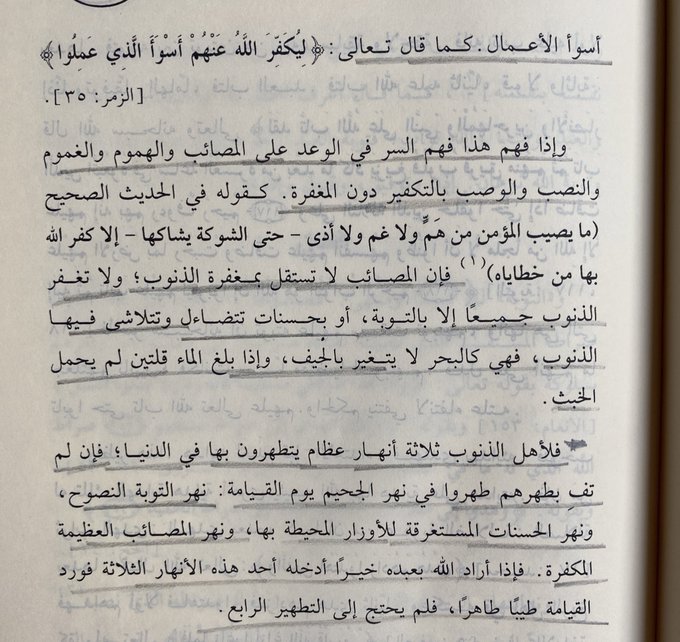 أسوأ الأعمال. كما قال تعالى: ﴿لِيُكَفِّرَ اللَّهُ عَنْهُمْ أَسْوَأَ الَّذِي عَمِلُوا﴾
[الزمر: ٣٥].
وإذا فهم هذا فهم السر في الوعد على المصائب والهموم والغموم
والنصب والوصب بالتكفير دون المغفرة. كقوله في الحديث الصحيح
(ما يصيب المؤمن من هَمٍّ ولا غم ولا أذى - حتى الشوكة يشاكها - إلا كفر الله
بها من خطاياه)(١) فإن المصائب لا تستقل بمغفرة الذنوب؛ ولا تغفر
الذنوب جميعًا إلا بالتوبة، أو بحسنات تتضاءل وتتلاشى فيها
الذنوب، فهي كالبحر لا يتغير بالجيف، وإذا بلغ الماء قلتين لم يحمل
الخبث.
فلأهل الذنوب ثلاثة أنهار عظام يتطهرون بها في الدنيا؛ فإن لم
تفِ بطهرهم طهروا في نهر الجحيم يوم القيامة: نهر التوبة النصوح،
ونهر الحسنات المستغرقة للأوزار المحيطة بها، ونهر المصائب العظيمة
المكفرة. فإذا أراد الله بعبده خيرًا أدخله أحد هذه الأنهار الثلاثة فورد
القيامة طيبًا طاهرًا، فلم يحتج إلى التطهير الرابع.